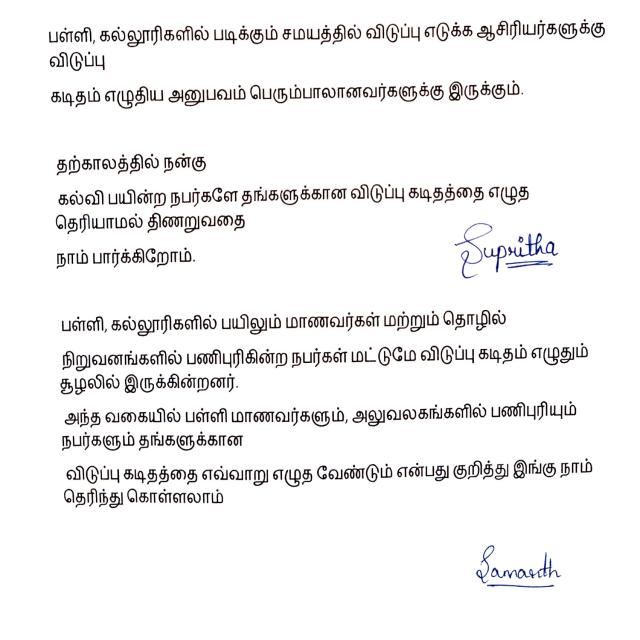 பள்ளி, கல்லூரிகளில் படிக்கும் சமயத்தில் விடுப்பு எடுக்க ஆசிரியர்களுக்கு
விடுப்பு
கடிதம் எழுதிய அனுபவம் பெரும்பாலானவர்களுக்கு இருக்கும்.
தற்காலத்தில் நன்கு
கல்வி பயின்ற நபர்களே தங்களுக்கான விடுப்பு கடிதத்தை எழுத
தெரியாமல் திணறுவதை
நாம் பார்க்கிறோம்.
Supritha
பள்ளி, கல்லூரிகளில் பயிலும் மாணவர்கள் மற்றும் தொழில்
நிறுவனங்களில் பணிபுரிகின்ற நபர்கள் மட்டுமே விடுப்பு கடிதம் எழுதும்
சூழலில் இருக்கின்றனர்.
அந்த வகையில் பள்ளி மாணவர்களும், அலுவலகங்களில் பணிபுரியும்
நபர்களும் தங்களுக்கான
விடுப்பு கடிதத்தை எவ்வாறு எழுத வேண்டும் என்பது குறித்து இங்கு நாம்
தெரிந்து கொள்ளலாம்
Samarth